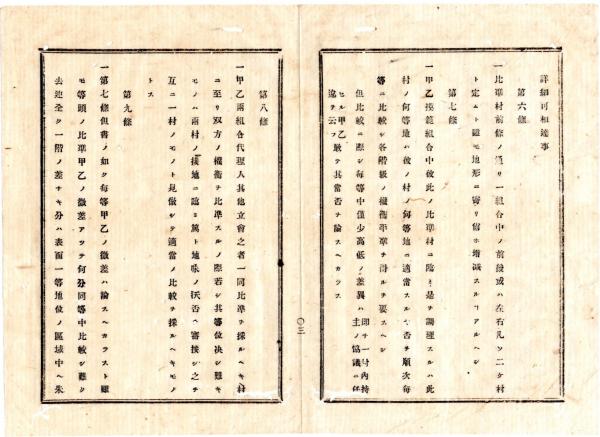 詳細可相達事
第六條
一比準村前條ノ通リ一組合中ノ前後或ハ左右凡ソ二ケ村
ト定ムト雖モ地形ニ寄リ猶ホ増减スルコアルヘシ
第七條
一甲乙模範組合中彼此ノ比準村ニ臨ミ是ヲ調理スルハ此
村ノ何等地ハ彼ノ村ノ何等地ニ適當スルヤ否ヲ順次毎
等ニ比較シ各階級ノ權衡平準ヲ得ルヲ要スヘシ
但比較ニ際シ毎等中僅少高低ノ差異ハ
主ノ協議ニ任
セル甲乙
敢テ其當否ヲ論スヘカラス
〇三
第八條
一甲乙兩組合代理人其他立會之者一同比準ヲ採ルヘキ村
ニ至リ双方ノ權衡ヲ比準スルノ際若シ其等位決シ難キ
モノハ兩村ノ接地ニ臨ミ篤ト地味ノ沃否ヘ審按シ之ヲ
互ニ一村ノモノト見傚シテ適當ノ比較ヲ採ルヘキモノ
トス
第九條
一第七條但書ノ如ク毎等甲乙ノ微差ハ論スヘカラスト雖
モ等頭ノ比準甲乙ノ微差アツテ何分同等中比較シ難シ
去迚全ク一階ノ差ナキ分ハ表面一等地位ノ區域中ヘ朱